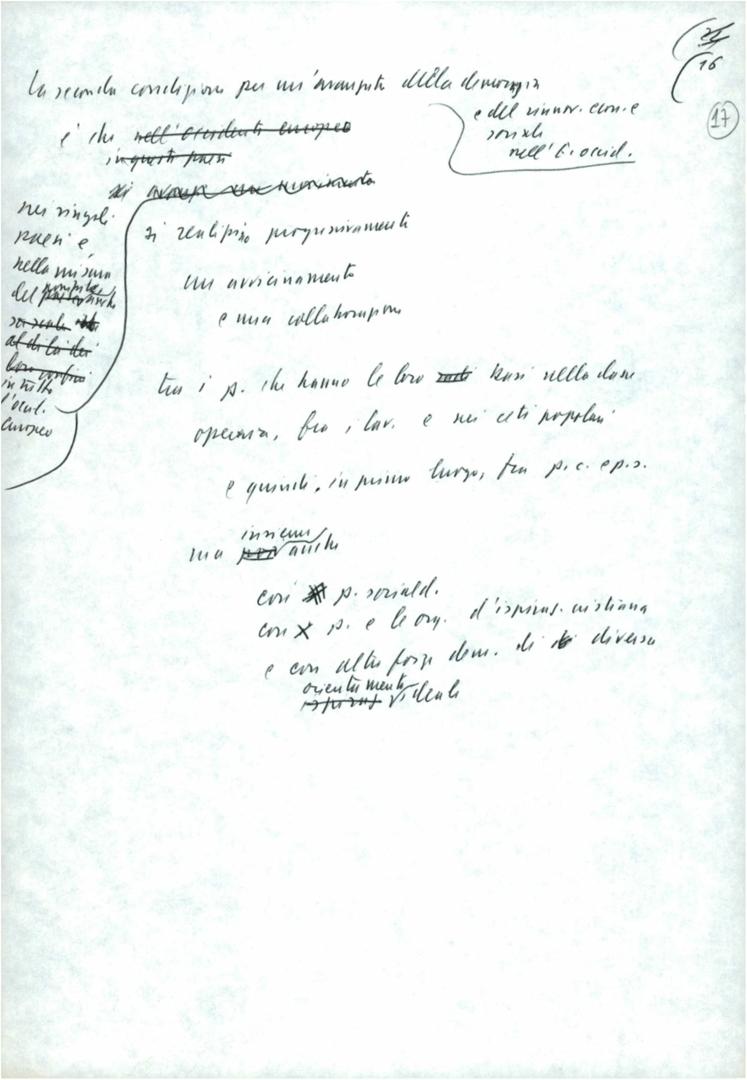 16
17
La seconda condizione per un'avanzata della democrazia
e del rinnov. econ. e
sociale
nell'E. occid.
è che nell'Occidente europeo
in questi paesi
si avvii un movimento
nei singoli
paesi e
nella misura
del possibile
al di là dei
loro confini
in tutto
l'occid.
europeo
si realizzino progressivamente
un avvicinamento
e una collaborazione
tra i p. che hanno le loro basi nella classe
operaia, fra i lav. e nei ceti popolari
e quindi, in primo luogo, tra p.c. e p.s.
insieme
ma per anche
con p. sociald.
con p. e le org. d'ispiraz. cristiana
e con altre forze dem. di diversa
orientamento
ispiraz ideale